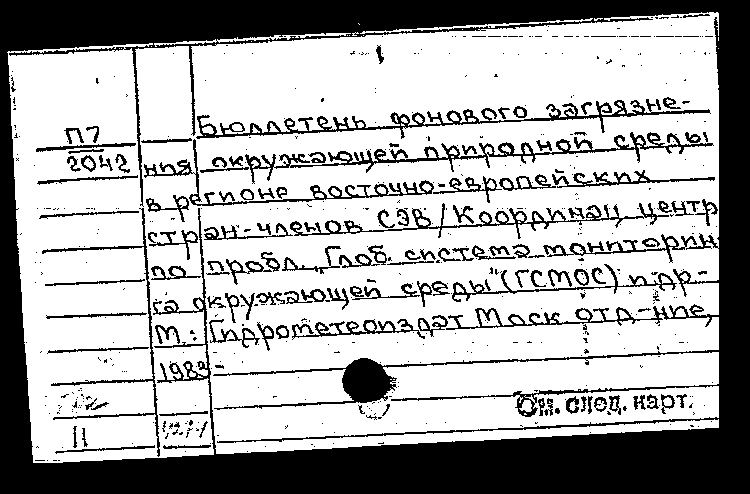 П7
2042
Бюллетень фонового загрязне-
ния окружающей природной среды
в регионе восточно-европейских
стран-членов СЭВ/Координац центр
по пробл. „Глоб. система мониторин
га окружающей среды"(ГСМОС) и др-
М.: Гидрометеоиздат Моск отд-ние,
198 -
См. след. карт.
11